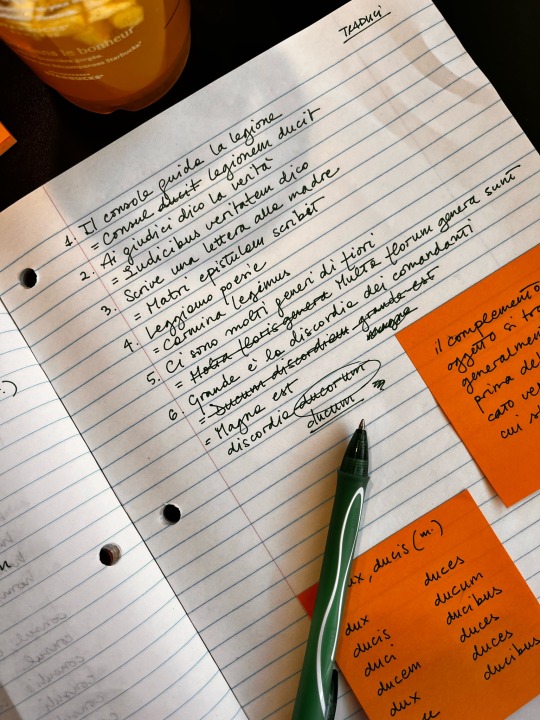 ens le bonheur
Starbucks®
TRADUCI
1. Il console guida la legione
= Consul ducit legionem ducit
2. Ai giudici dico la verità
= Iudicibus veritatem dico
3. Scrive una lettera alla madre
= Matri epistulam scribet
4. Leggiamo poesie
= Carmina legimus
5. Ci sono molti generi di fiori
= Multa floris genera Multa florum genera sunt
6. Grande è la discordia dei comandanti
= Ducum discordiam grande est
magna
= Magna est
discordia ducorum
ducum
il complemento
oggetto si tro
generalmen
prima del
cato ver
cui s
ux, ducis (m.)
dux
ducis
duci
ducem
dux
duces
ducum
ducibus
duces
duces
ducibus